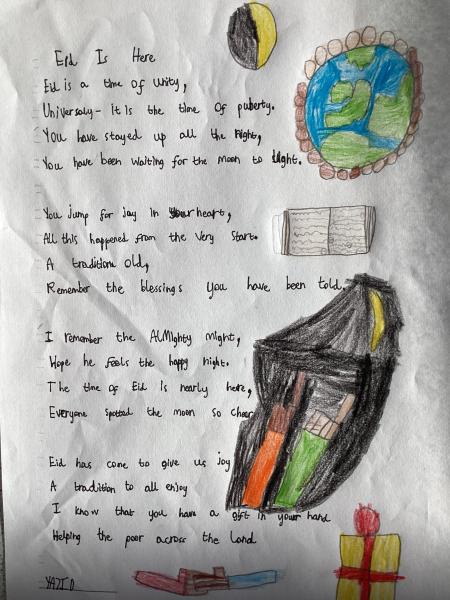 Eid Is Here
Eid is a time of Unity,
Universaly - it is the time of puberty.
You have stayed up all the night,
You have been waiting for the moon to light.
You jump for joy in your heart,
All this happened from the very start.
A tradition old,
Remember the blessings you have been told.
I remember the Almighty might,
Hope he feels the happy night.
The time of Eid is nearly here,
Everyone spotted the moon so cheer
Eid has come to give us joy
A tradition to all enjoy
I know that you have a gift in your hand
Helping the poor across the land